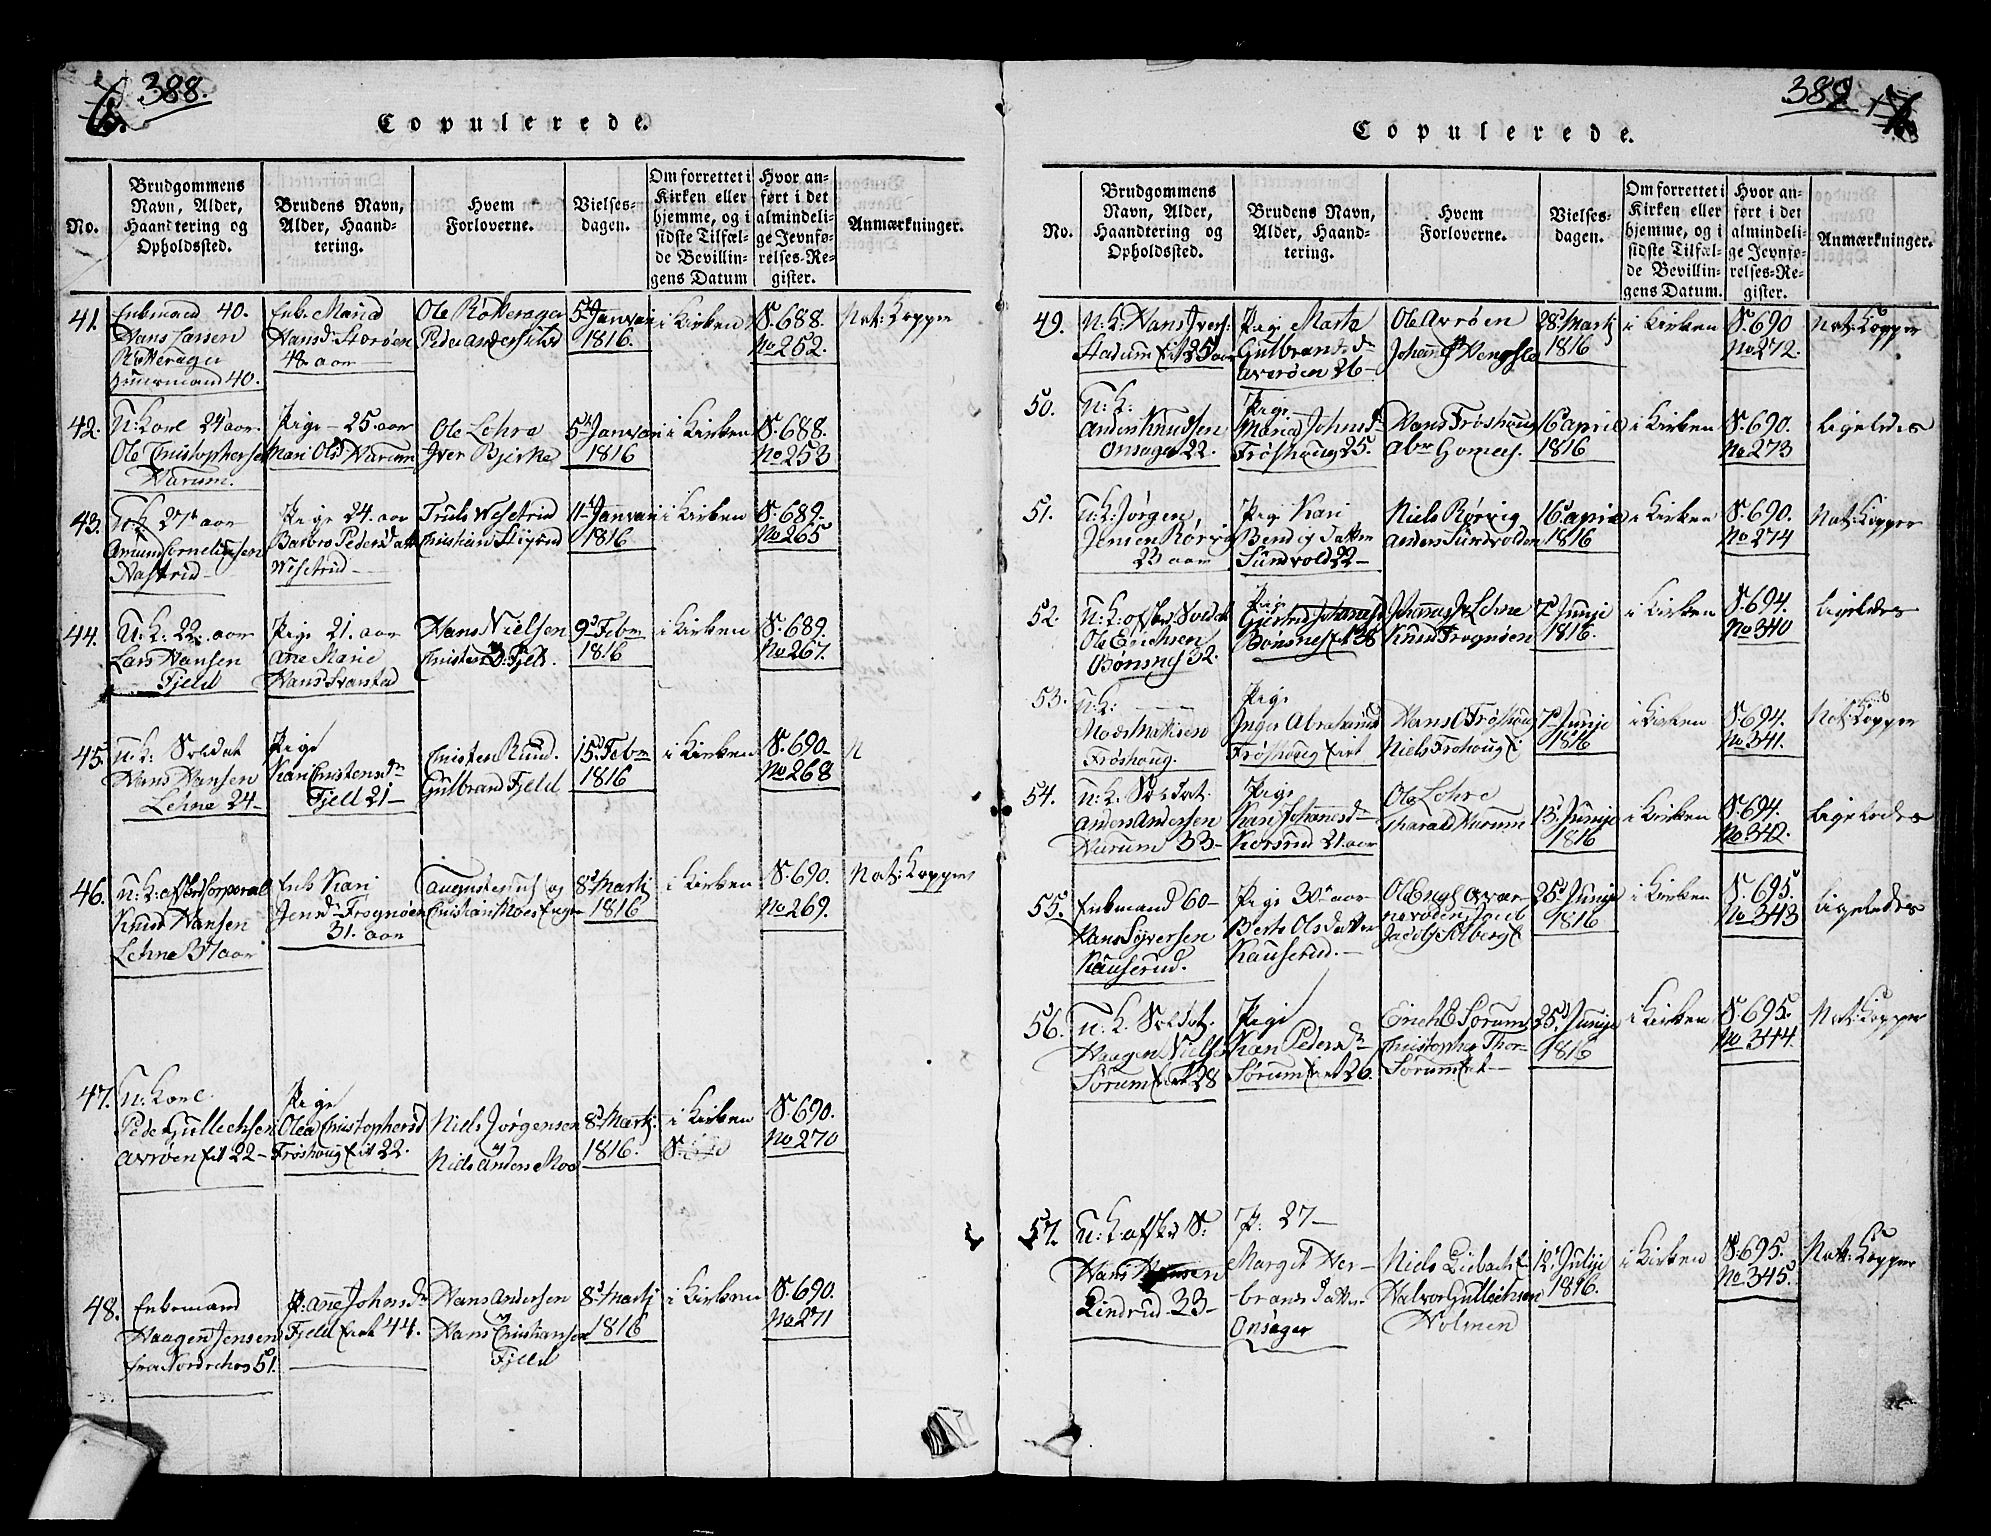 388.
Copulerede.
No.
Brudgommens Navn, Alder, Haandtering og Opholdssted.
Brudens Navn, Alder, Haandtering.
Hvem Forloverne.
Vielsesdagen.
Om forrettet i Kirken eller hjemme, og i sidste Tilfælde Bevillingens Datum
Hvor anført i det almindelige Jevnførelses-Register.
Anmærkninger.
41.
Enkemand 40.
Hans Larsen
40.
Enk. Maria
Hansd. Storøen
48 aar
Ole
Peder Anders
5 Januari
1816.
i Kirken
S. 688.
No 252.
Nat: Kopper
42.
U: Karl 24 aar.
Ole Christophersen
Harum.
Pige 25 aar
Mari Olsd Harum
Ole Lehre
Iver Bjerke
5 Januari
1816
i Kirken
S. 688.
No 253
43.
27 aar
Pige 24. aar
Barbro Pedersdatt
Truls
Christian
11 Januari
1816
i Kirken
S. 689.
No 265
44.
U: K: 22. aar
Lars Hansen
Fjeld
Pige 21. aar
Ane Marie
Hans
Hans Nielsen
Christen Fjeld.
9 Febr
1816
i Kirken
S. 689.
No 267.
45.
U: K: Soldat
Hans Hansen
Lehne 24
Pige
Kari Christensdr
Fjeld 21
Christen Rund.
Gulbrand Fjeld
15 Febr
1816
i Kirken
S. 690
No 268
N
46.
U: K: Corporal
Knud Hansen
Lehne 37 aar
Enk Kari
Jensdr Frognøen
31. aar
og
Christian Moe
8 Martj
1816
i Kirken
S. 690.
No 269.
Nat: Kopper
47.
U: Karl
Peder Gullechsen
Avrøen 22
Pige
Olea Christophersd
Frøshoug 22.
Niels Jørgensen
Niels Anders Moe
8 Martj.
1816.
i Kirken
S. 690.
No 270
48.
Enkemand
Haagen Jensen
fra 51.
P: Anne Johansdr
Fjeld 44.
Hans Andersen
Hans Christiansen
Fjeld
8 Martj
1816
i Kirken
S. 690.
No 271
389
Copulerede.
No.
Brudgommens Navn, Alder, Haandtering og Opholdssted.
Brudens Navn, Alder, Haandtering.
Hvem Forloverne.
Vielsesdagen.
Om forrettet i Kirken eller hjemme, og i sidste Tilfælde Bevillingens Datum.
Hvor anført i det almindelige Jevnførelses-Register.
Anmærkninger.
49.
U: K: Hans Ivers:
Stadum 35 aar
Pige Marta
Gulbrandsdr
Avrøen 26
Ole Avrøen
28 Martj
1816
i Kirken
S. 690
No 272.
Nat: Kopper
50.
U: K:
Anders Knudsen
Onsager 22.
Pige
Maria Johnsdr
Frøshoug 25.
Hans Frøshoug
Abr Gomes.
16 April
1816
i Kirken
S. 690.
No 273
Ligeledes
51.
U: K: Jørgen
Jensen Rørvig
23 aar
Pige Kari
Bendigdatter
Sundvold 22
Niels Rørvig
Anders Sundvolden
16 April
1816
i Kirken
S. 690.
No 274
Nat: Kopper
52.
U: K: Soldat
Ole Erichsen
Bønsnes 32.
Pige
Gjertrud Johannesd
Bønsnes 28
Johannes Lehne
Knud Frognøen
7 Junij
1816.
i Kirken
S. 694.
No 340
Ligeledes
53.
U: K:
Frøshoug.
Pige
Inger Abrahamsd
Frøshoug
Hans Frøshoug
Niels
7 Junij
1816
i Kirken
S. 694.
No 341.
Nat: Kopper
54.
U: K. Soldat.
Anders Andersen
Harum 33
Pige
Kari Johannesdr
Korsrud 21. aar
Ole Lehre
Tharald Harum
13 Junij
1816
i Kirken
S. 694.
No 342.
Ligeledes
55.
Enkemand 60
Hans Syversen
Kauserud.
Pige 30 aar
Berte Olsdatter
Kauserud.
25 Junij
1816
i Kirken
S. 695.
No 343
Ligeledes
56.
U: K. Soldat.
Haagen Niels
Sørum 28
Pige
Kari Pedersdr
Sørum 26.
Erich E Sørum
Christopher Thor
Sørum
25 Junij
1816
i Kirken
S. 695.
No 344.
Nat: Kopper
57.
U: K. S:
Hans Hansen
Lindrud 33
P: 27
Margit Herbrandsdatter
Onsager
Niels
Halvor Gullichsen
Holmen
12 Julij
1816.
i Kirken
S. 695.
No 345.
Nat: Kopper